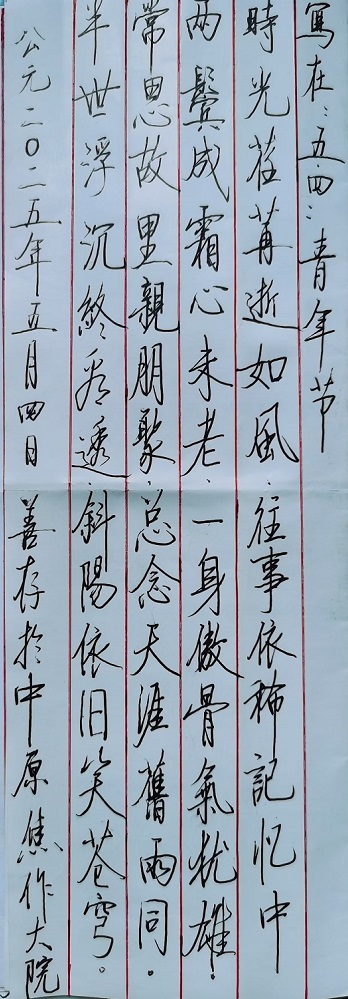 寫在：五四：青年节
時光荏苒逝如風．往事依稀記忆中
兩鬓成霜心未老．一身傲骨氣犹雄．
常思故里親朋聚．总念天涯舊雨同．
半世浮沉終看透．斜陽依旧笑苍穹。
公元二〇二五年五月四日 善存於中原焦作大院